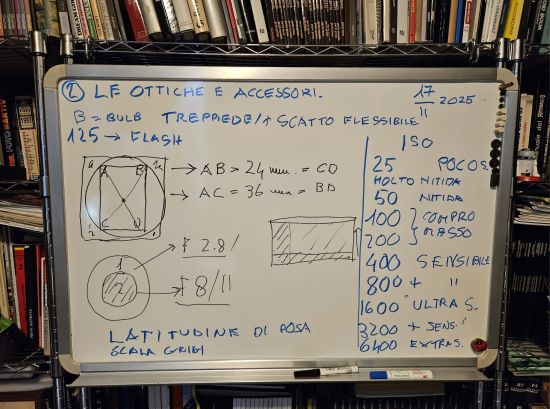 2 LE OTTICHE E ACCESSORI.
17/11 2025
B = BULB TREPPIEDE/+ SCATTO FLESSIBILE
125 → FLASH
→ AB = 24 mm. = CD
→ AC = 36 mm = BD
A B
C D
1
2
F 2.8/
F 8/11
LATITUDINE DI POSA
SCALA GRIGI
ISO
25 POCO S.
MOLTO NITIDA
50 NITIDA
100 } COMPRO
200 } MESSO
400 SENSIBILE
800 + "
1600 ULTRA S.
3200 + SENS. "
6400 EXTRA S.